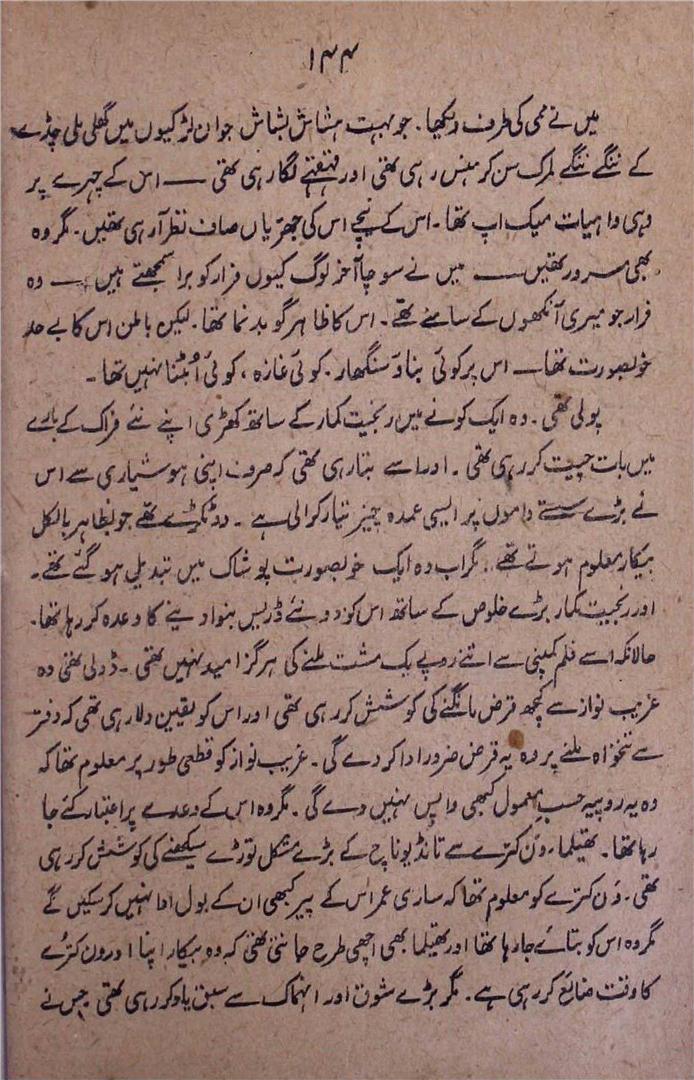 ۱۴۴
میں نے ممی کی طرف دیکھا۔ جو بہت ہشاش بشاش جوان لڑکیوں میں گھلی ملی چڈے
کے ننگے ننگے لمرک سن کر ہنس رہی تھی اور قہقہے لگا رہی تھی — اس کے چہرے پر
وہی واہیات میک اپ تھا۔ اس کے نیچے اس کی جھریاں صاف نظر آ رہی تھیں۔ مگر وہ
بھی مسرور تھیں — میں نے سوچا آخر لوگ کیوں فرار کو برا سمجھتے ہیں — وہ
فرار جو میری آنکھوں کے سامنے تھے۔ اس کا ظاہر گو بدنما تھا۔ لیکن باطن اس کا بے حد
خوبصورت تھا — اس پر کوئی بناؤ سنگھار۔ کوئی غازہ، کوئی اُبٹنا نہیں تھا۔
پولی تھی۔ وہ ایک کونے میں رنجیت کمار کے ساتھ کھڑی اپنے نئے فراک کے بارے
میں بات چیت کر رہی تھی۔ اور اسے بتا رہی تھی کہ صرف اپنی ہوشیاری سے اس
نے بڑے سستے داموں پر ایسی عمدہ چیز تیار کرا لی ہے۔ دو ٹکڑے تھے جو بظاہر بالکل
بیکار معلوم ہوتے تھے۔ مگر اب وہ ایک خوبصورت پوشاک میں تبدیل ہو گئے تھے۔
اور رنجیت کمار بڑے خلوص کے ساتھ اس کو دو نئے ڈریس بنوا دینے کا وعدہ کر رہا تھا۔
حالانکہ اسے فلم کمپنی سے اتنے روپے یک مشت ملنے کی ہرگز امید نہیں تھی۔ ڈولی تھی وہ
غریب نواز سے کچھ قرض مانگنے کی کوشش کر رہی تھی اور اس کو یقین دلا رہی تھی کہ دفتر
سے تنخواہ ملنے پر وہ یہ قرض ضرور ادا کر دے گی۔ غریب نواز کو قطعی طور پر معلوم تھا کہ
وہ یہ روپیہ حسبِ معمول کبھی واپس نہیں دے گی۔ مگر وہ اس کے وعدے پر اعتبار کئے جا
رہا تھا۔ تھیلما۔ ون کترے سے تانڈیو ناچ کے بڑے مشکل توڑے سیکھنے کی کوشش کر رہی
تھی۔ ون کترے کو معلوم تھا کہ ساری عمر اس کے پیر کبھی ان کے بول ادا نہیں کر سکیں گے
مگر وہ اس کو بتائے جا رہا تھا اور تھیلما بھی اچھی طرح جانتی تھی کہ وہ بیکار اپنا اور ون کترے
کا وقت ضائع کر رہی ہے۔ مگر بڑے شوق اور انہماک سے سبق یاد کر رہی تھی جس نے